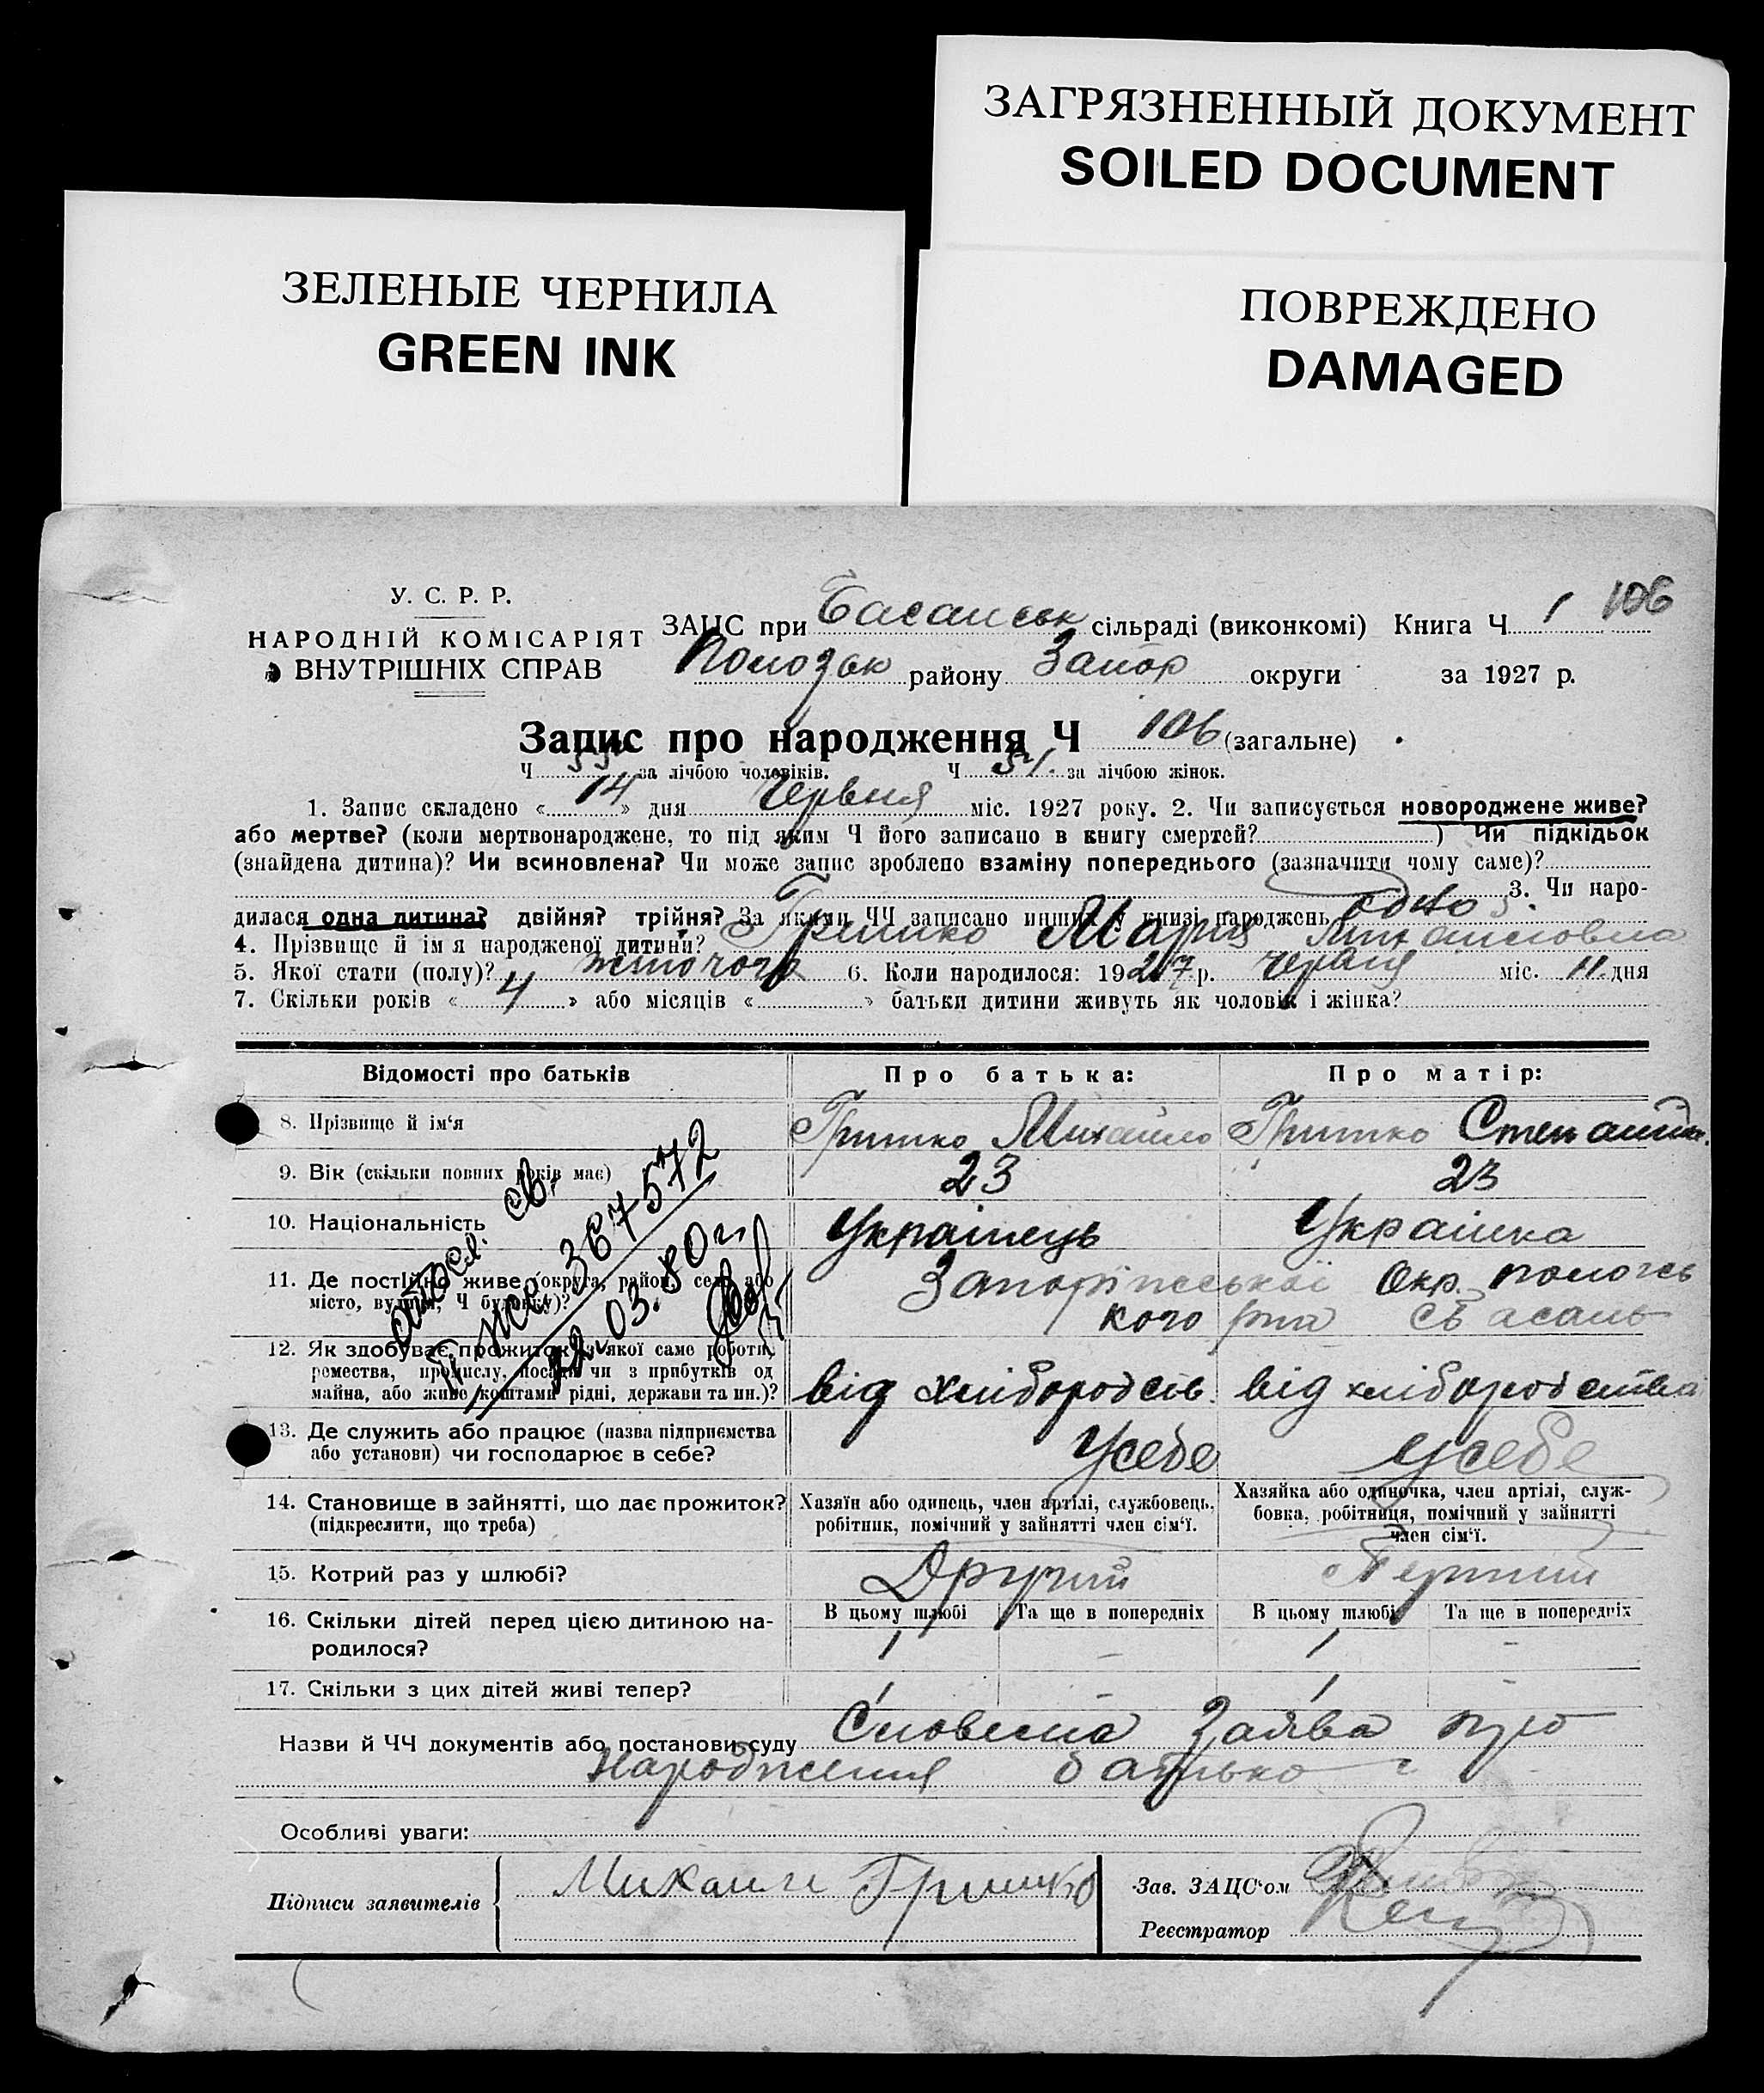 ЗАГРЯЗНЕННЫЙ ДОКУМЕНТ
SOILED DOCUMENT
ЗЕЛЕНЫЕ ЧЕРНИЛА
GREEN INK
ПОВРЕЖДЕНО
DAMAGED
У. С. Р. Р.
НАРОДНІЙ КОМІСАРІЯТ
ВНУТРІШНІХ СПРАВ
ЗАЦС при Басанськ сільраді (виконкомі) Книга Ч 1 106
району Запор округи за 1927 р.
Запис про народження Ч 106 (загальне)
Ч за лічбою чоловіків. Ч 51. за лічбою жінок.
1. Запис складено «14» дня Червня міс. 1927 року. 2. Чи записується новороджене живе?
або мертве? (коли мертвонароджене, то під яким Ч його записано в книгу смертей? ) Чи підкідьок
(знайдена дитина)? Чи всиновлена? Чи може запис зроблено взаміну попереднього (зазначити чому саме)?
3. Чи наро-
дилася одна дитина? двійня? трійня? За якими ЧЧ записано инших у книзі народжень одно
4. Прізвище й ім я народженої дитини? Гришко Мария Михайловна
5. Якої стати (полу)? жіночого 6. Коли народилося: 1927 р. червня міс. 11. дня
7. Скільки років «4» або місяців « » батьки дитини живуть як чоловік і жінка?
Відомості про батьків Про батька: Про матір:
8. Прізвище й ім‘я Гришко Михайло Гришко
9. Вік (скільки повних років має) 23 23
10. Національність Українець Українка
11. Де постійно живе (округа, район, село або Запоріжської Окр. Пологсь
місто, вулиця, Ч будинку)? кого р-на с Басань
12. Як здобуває прожиток (з якої саме роботи,
ремества, промислу, посади чи з прибутків од
майна, або живе коштами рідні, держави та ин.)? від хліборобсв. від хліборобства
13. Де служить або працює (назва підприємства
або установи) чи господарює в себе? Усебе усебе
ІІ ЖС 367572
22.03.80г.
14. Становище в зайнятті, що дає прожиток?
(підкреслити, що треба)
Хазяїн або одинець, член артілі, службовець,
робітник, помічний у зайнятті член сім‘ї.
Хазяйка або одиночка, член артілі, служ-
бовка, робітниця, помічний у зайнятті
член сім‘ї.
15. Котрий раз у шлюбі? Другий Перший
16. Скільки дітей перед цією дитиною на-
родилося?
В цьому шлюбі Та ще в попередніх В цьому шлюбі Та ще в попередніх
1 – 1 –
17. Скільки з цих дітей живі тепер? 1 – 1 –
Назви й ЧЧ документів або постанови суду Словесна Заява про
народження батько
Особливі уваги:
Підписи заявителів Гришко
Зав. ЗАЦС‘ом
Реєстратор